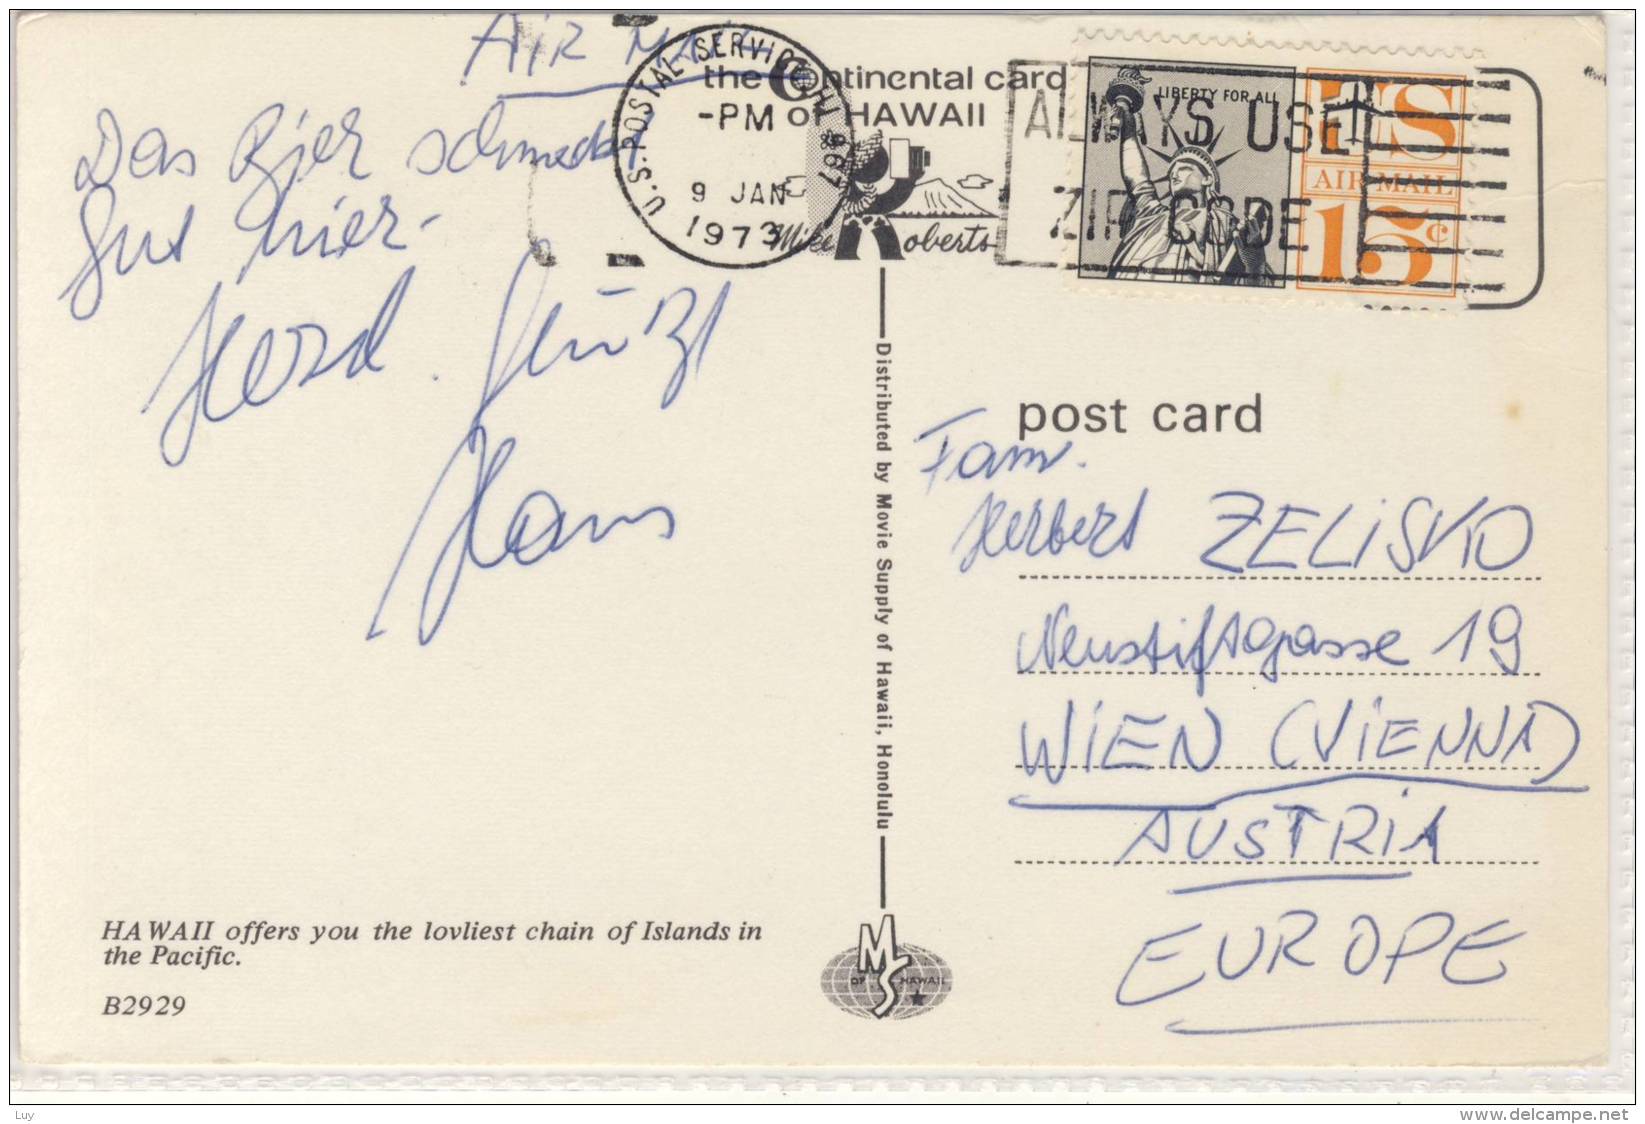 AIR MAIL
Das Bier schmeckt
gut hier -
Herzl. Grüße
Hans
the Continental card
of HAWAII
Mike Roberts
U.S. POSTAL SERVICE HI 967
-PM
9 JAN
1973
ALWAYS USE
ZIP CODE
LIBERTY FOR ALL
US
AIR MAIL
15c
Distributed by Movie Supply of Hawaii, Honolulu
post card
Fam.
Herbert ZELISKO
Neustiftgasse 19
WIEN (VIENNA)
AUSTRIA
EUROPE
HAWAII offers you the lovliest chain of Islands in
the Pacific.
B2929
MS
OF HAWAII
Luy
www.delcampe.net